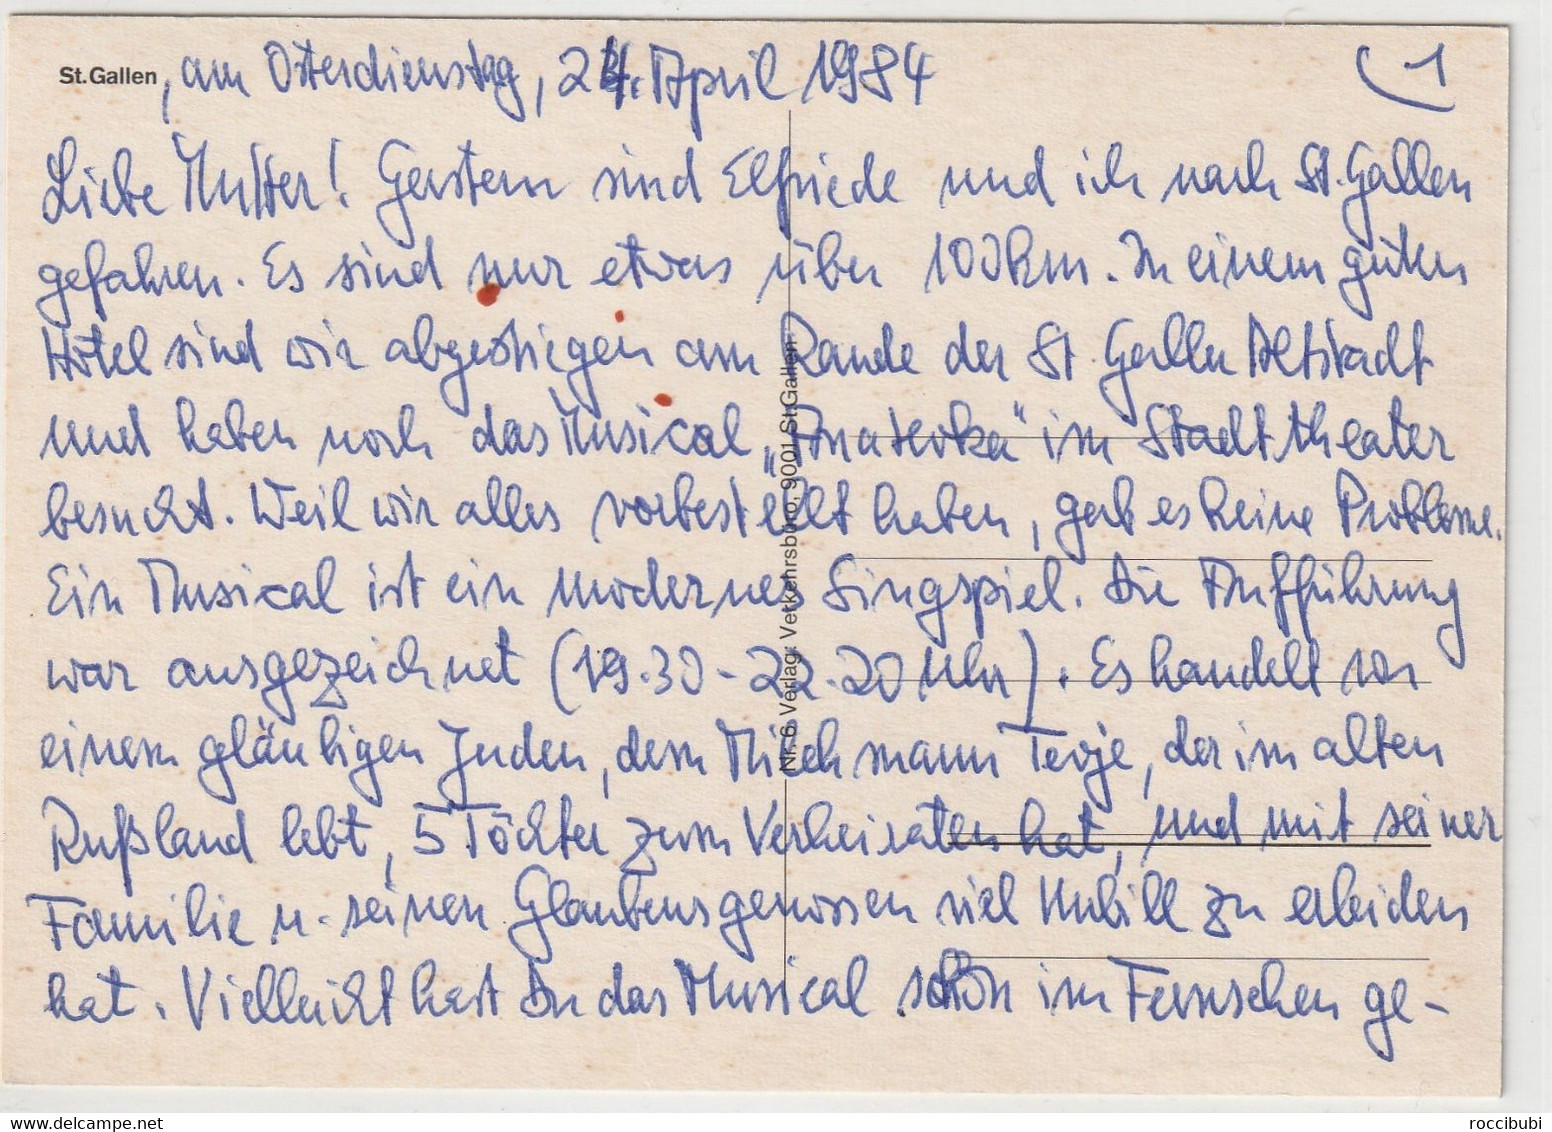 St.Gallen, am Osterdienstag, 24. April 1984
1
Liebe Mutter! Gestern sind Elfriede und ich nach St. Gallen
gefahren. Es sind nur etwas über 100km. In einem guten
Hotel sind wir abgestiegen am Rande der St. Galler Altstadt
und haben noch das Musical „Anatevka“ im Stadttheater
besucht. Weil wir alles vorbestellt haben, gab es keine Probleme.
Ein Musical ist ein modernes Singspiel. Die Aufführung
war ausgezeichnet (19.30-22.20 Uhr). Es handelt von
einem gläubigen Juden, dem Milchmann Tevje, der im alten
Rußland lebt, 5 Töchter zum Verheiraten hat, und mit seiner
Familie u. seinen Glaubensgenossen viel Unbill zu erleiden
hat. Vielleicht hast Du das Musical schon im Fernsehen ge-
Nr. 6 Verlag: Verkehrsbüro, 9001 St.Gallen
roccibubi